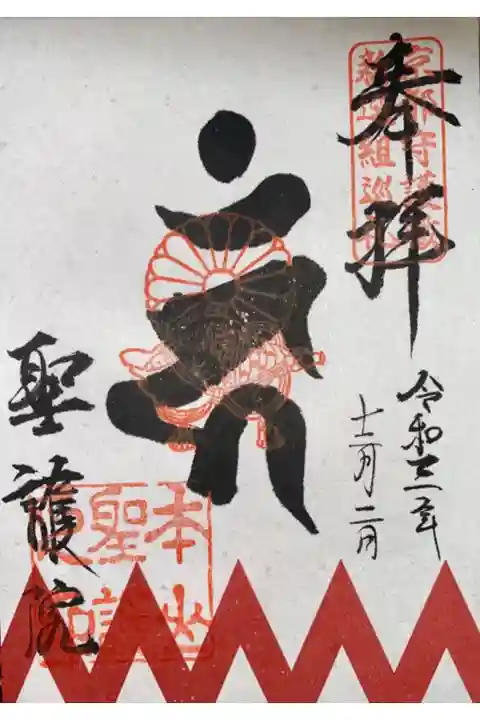 奉拝
京都守護職
新選組巡礼
令和三年
十二月二日
聖護院
本山
聖護